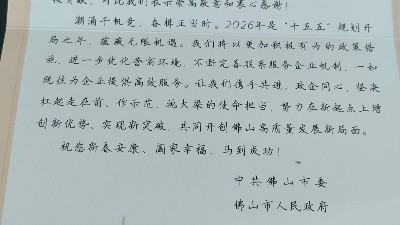 较贡献，对此我们表示崇高敬意和衷心感谢！
潮涌千帆竞，奋楫正当时。2026年是“十五五”规划开
局之年，蕴藏无限机遇。我们将以更加积极有为的政策措
施，进一步优化营商环境，不断完善联系服务企业机制，一如
既往为企业提供高效服务。让我们携手共进、政企同心，坚决
扛起走在前、作示范、挑大梁的使命担当，努力在新起点上增
创新优势、实现新突破，共同开创佛山高质量发展新局面。
祝您新春安康、阖家幸福、马到成功！
中共佛山市委
佛山市人民政府